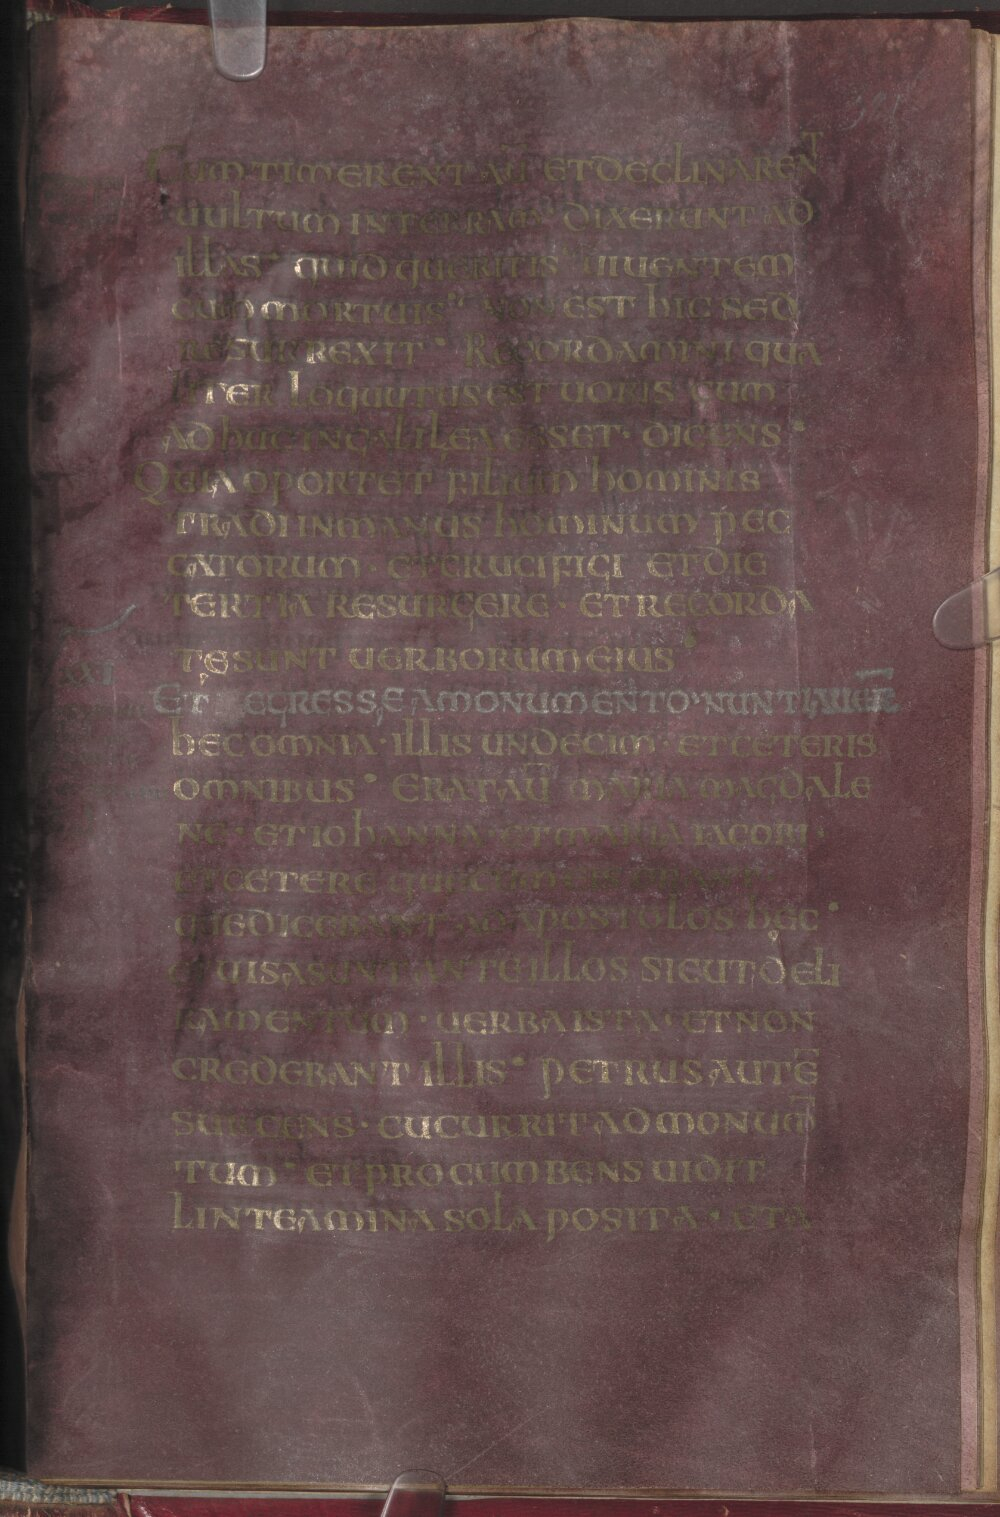 Cum timerent au̅ et declinarent
uultum in terram dixerunt ad
illas· quid queritis uiuentem
cum mortuis· non est hic sed
resurrexit· Recordamini qua
liter loquutus est uobis cum
adhuc in galilea esset· dicens·
Quia oportet filium hominis
tradi in manus hominum pec
catorum· et crucifigi et die
tertia resurgere· et recorda
te sunt uerborum eius
XXI
Et regresse a monumento· nuntiauer̅
hec omnia· illis undecim· et ceteris
omnibus· Erat au̅ maria magdale
ne· et iohanna· et maria iacobi·
et cetere que cum eis erant·
que dicebant· ad apostolos hec·
et uisa sunt ante illos sicut deli
ramentum· uerba ista· et non
credebant illis· petrus aute̅
surgens· cucurrit ad monum̅
tum· et procumbens uidit
linteamina sola posita· et a